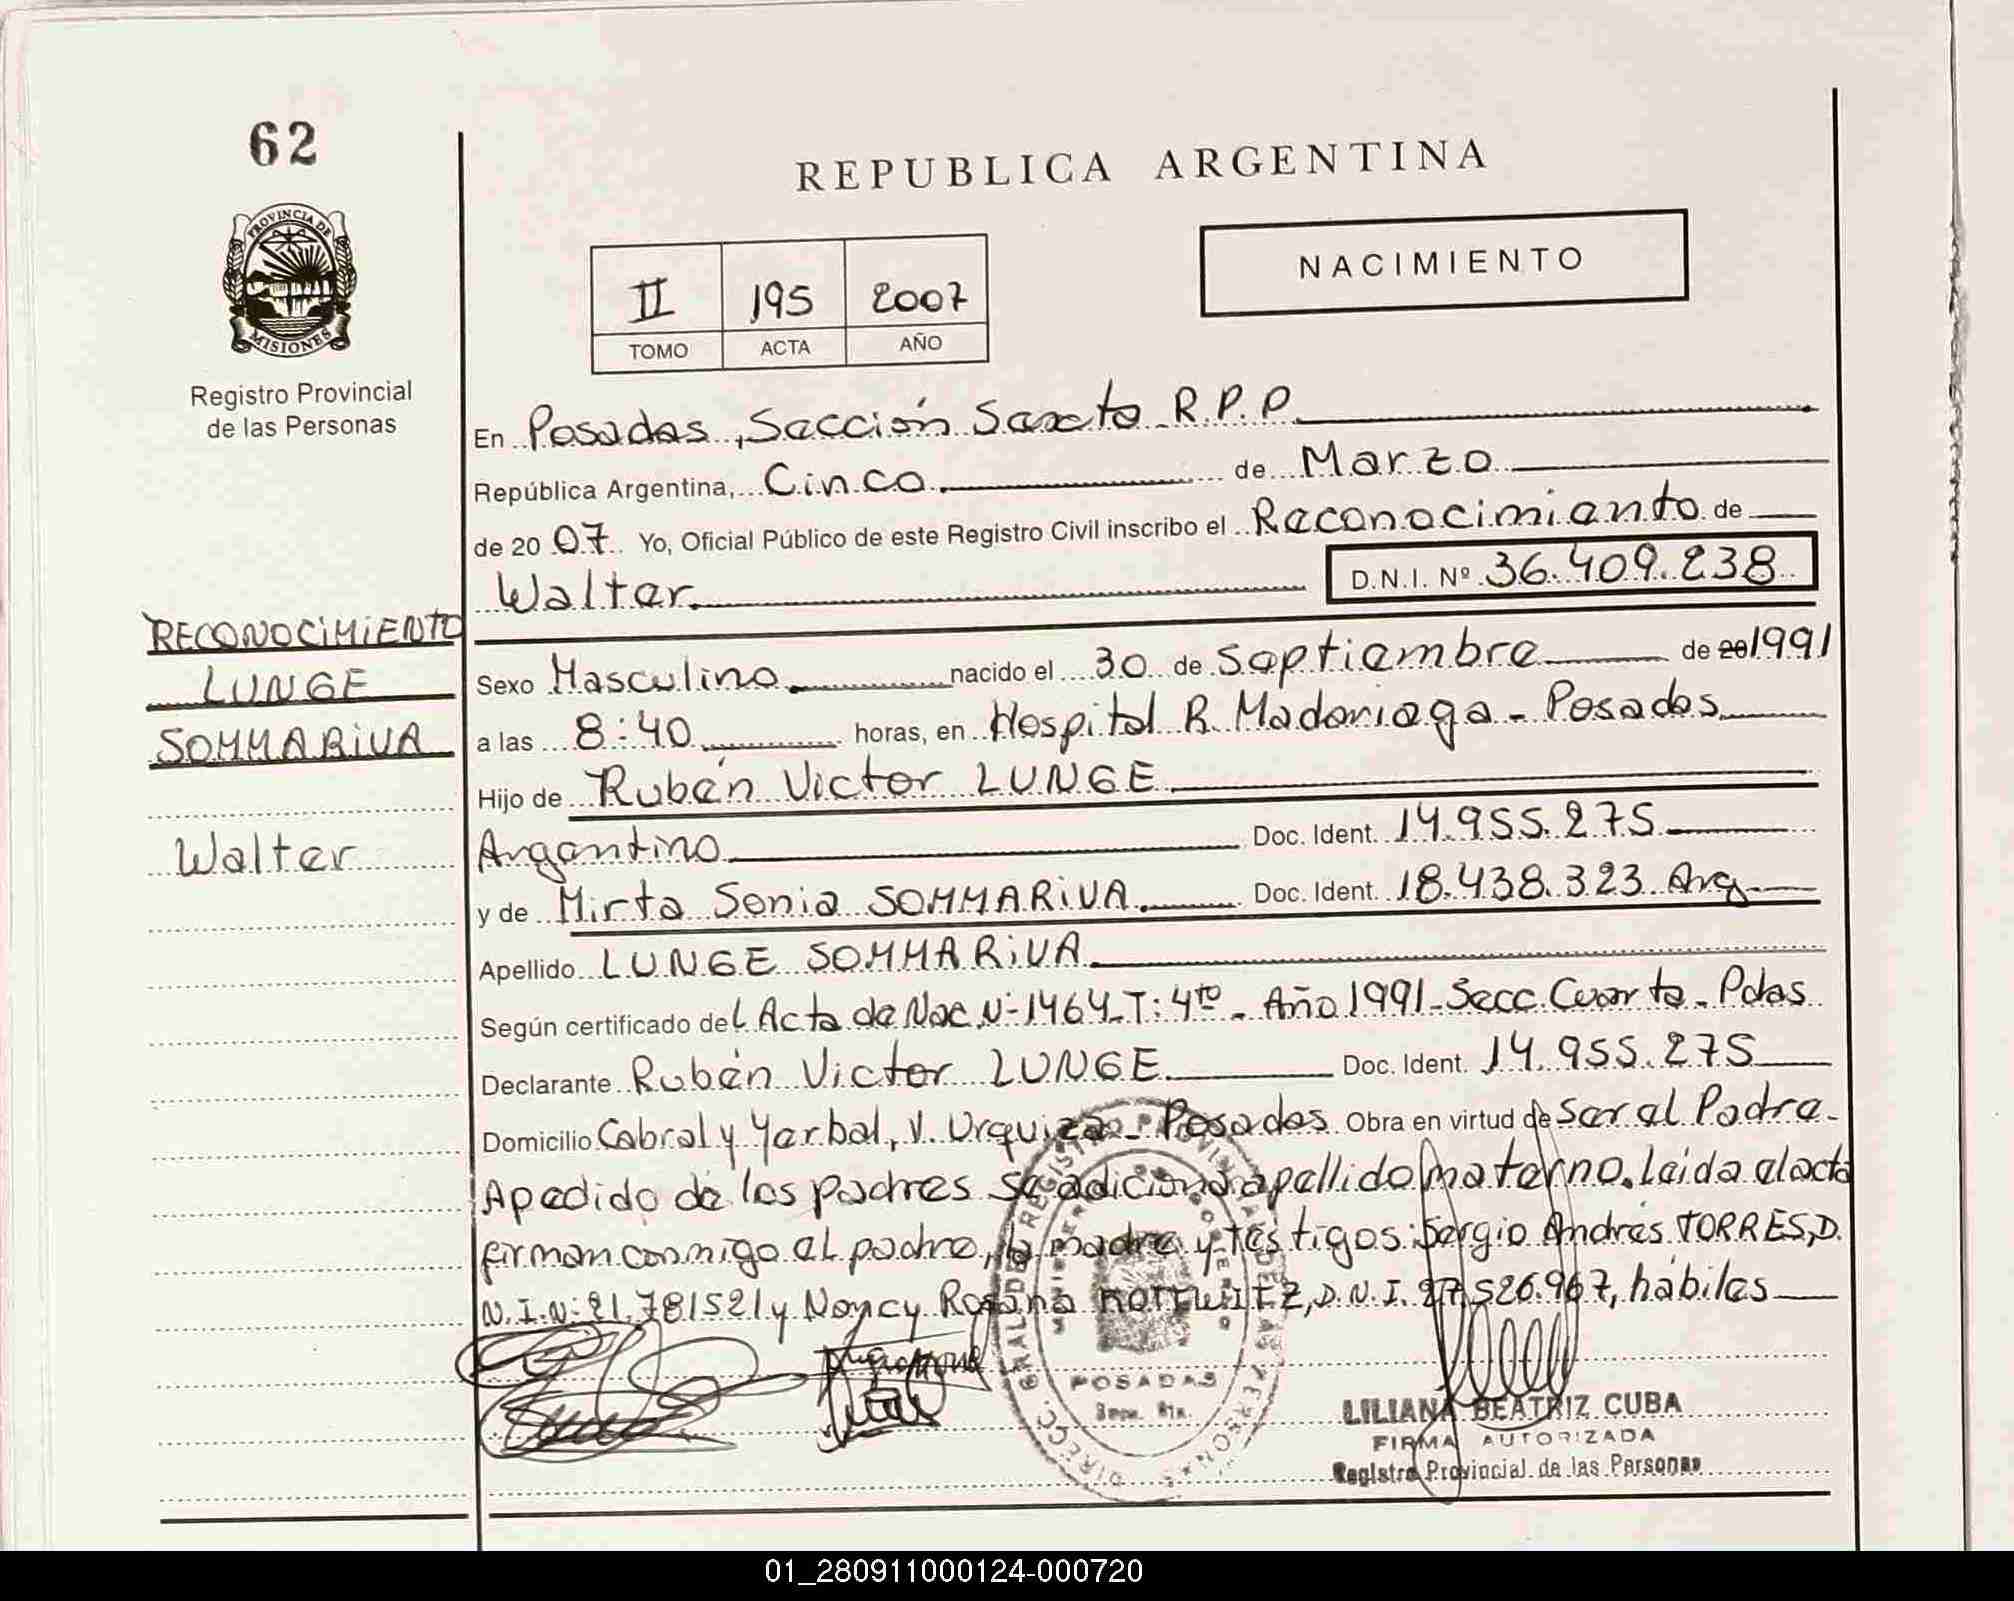 62
REPUBLICA ARGENTINA
PROVINCIA DE MISIONES
NACIMIENTO
II 195 2007
TOMO ACTA AÑO
Registro Provincial
de las Personas
En Posadas, Sección Sexta R.P.P.
República Argentina, Cinco de Marzo
de 20 07 Yo, Oficial Público de este Registro Civil inscribo el Reconocimiento de
Walter D.N.I. Nº 36.409.238
RECONOCIMIENTO
LUNGE
SOMMARIVA
Walter
Sexo Masculino nacido el 30 de Septiembre de 20 1991
a las 8:40 horas, en Hospital R. Madariaga - Posadas
Hijo de Rubén Victor LUNGE
Argentino Doc. Ident. 14.955.275
y de Mirta Sonia SOMMARIVA Doc. Ident. 18.438.323 Arg
Apellido LUNGE SOMMARIVA
Según certificado del Acta de Nac. N-1464-T: 4to - Año 1991 - Secc. Cuarta - Pdas
Declarante Rubén Victor LUNGE Doc. Ident. 14.955.275
Domicilio Cabral y Yerbal, V. Urquiza - Posadas Obra en virtud de Ser el Padre -
A pedido de los padres se adiciona apellido materno. Leida el acta
firman conmigo el padre, la madre y testigos: Sergio Andrés TORRES, D.
N.I.N: 21.781521 y Nancy Rosana D.N.I. 27.526.967, hábiles
DIRECC. GRAL DEL REGISTRO PROVINCIAL DE LAS PERSONAS
POSADAS
LILIANA BEATRIZ CUBA
FIRMA AUTORIZADA
Registro Provincial de las Personas
01_280911000124-000720